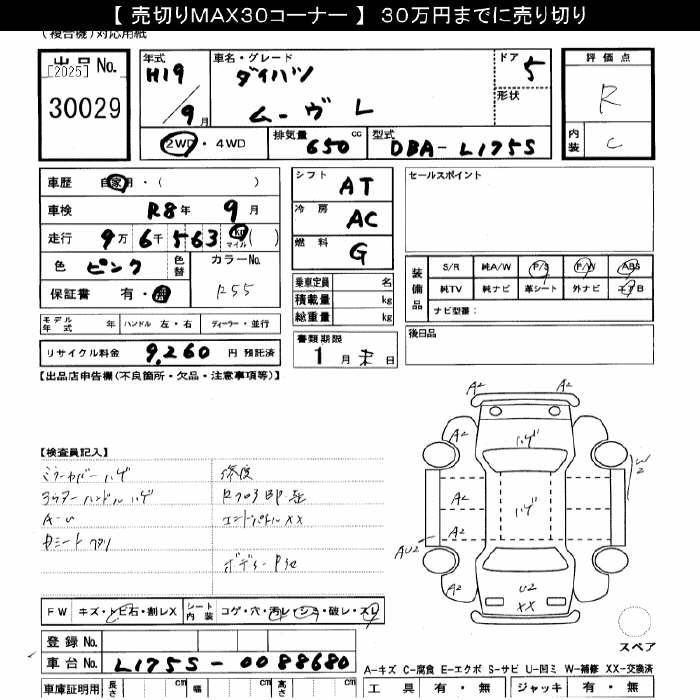 【 売切りMAX30コーナー 】 30万円までに売り切り
(複合機)対応用紙
出品No.
[2025]
30029
年式
H19
9月
車名・グレード
ダイハツ
ムーヴ L
ドア
5
形状
評価点
R
内装
C
2WD ・ 4WD
排気量
650 cc
型式
DBA- L175S
車歴 自家用・( )
車検 R8年 9月
走行 9万 6千 563 km マイル ( )
色 ピンク 色替 カラーNo.
保証書 有・無 R55
モデル年式 年 ハンドル 左・右 ディーラー・並行
リサイクル料金 9,260 円 預託済
シフト AT
冷房 AC
燃料 G
乗車定員 名
積載量 kg
総重量 kg
書類期限
1月 末日
セールスポイント
装備品
S/R 純A/W P/S P/W ABS
純TV 純ナビ 革シート 外ナビ エアB
ナビ型番:
後日品
【出品店申告欄(不良箇所・欠品・注意事項等)】
【検査員記入】
ミラーカバー ハゲ
ハンドル ハゲ
A-U
シート
エンドパネル XX
ボデー
FW キズ・トビ石・割レX
シート内装 コゲ・穴・汚レ・シミ・破レ・スレ
登録No.
車台No. L175S-0088680
車庫証明用 長さ cm 幅 cm 高さ cm
A2
A2
A2
A2
ハゲ
W2
A2
ハゲ
A2
AU2
A2
U2
XX
A2
スペア
A-キズ C-腐食 E-エクボ S-サビ U-凹ミ W-補修 XX-交換済
工具 有・無 ジャッキ 有・無